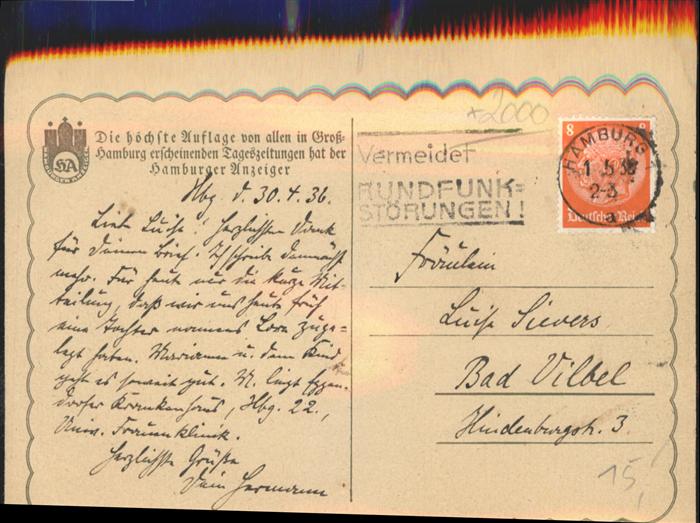 Die höchste Auflage von allen in Groß-
Hamburg erscheinenden Tageszeitungen hat der
Hamburger Anzeiger
HA
Hbg. d. 30.4.36.
Liebe Luise! Herzlichsten Dank
für Deinen Brief. Ich schreibe demnächst
mehr. Für heute nur die kurze Mit-
teilung, daß wir uns heute früh
eine Tochter namens Lore zuge-
legt haben. Marianne u. dem Kind
geht es soweit gut. M. liegt Eppen-
dorfer Krankenhaus, Hbg. 22.,
Univ. Frauenklinik.
Herzlichste Grüße
Dein Hermann
+2000
Vermeidet
RUNDFUNK-
STÖRUNGEN!
8 8
HAMBURG 1
1.5.36
2-3
Deutsches Reich
Fräulein
Luise Sievers
Bad Vilbel
Hindenburgstr. 3.
15,